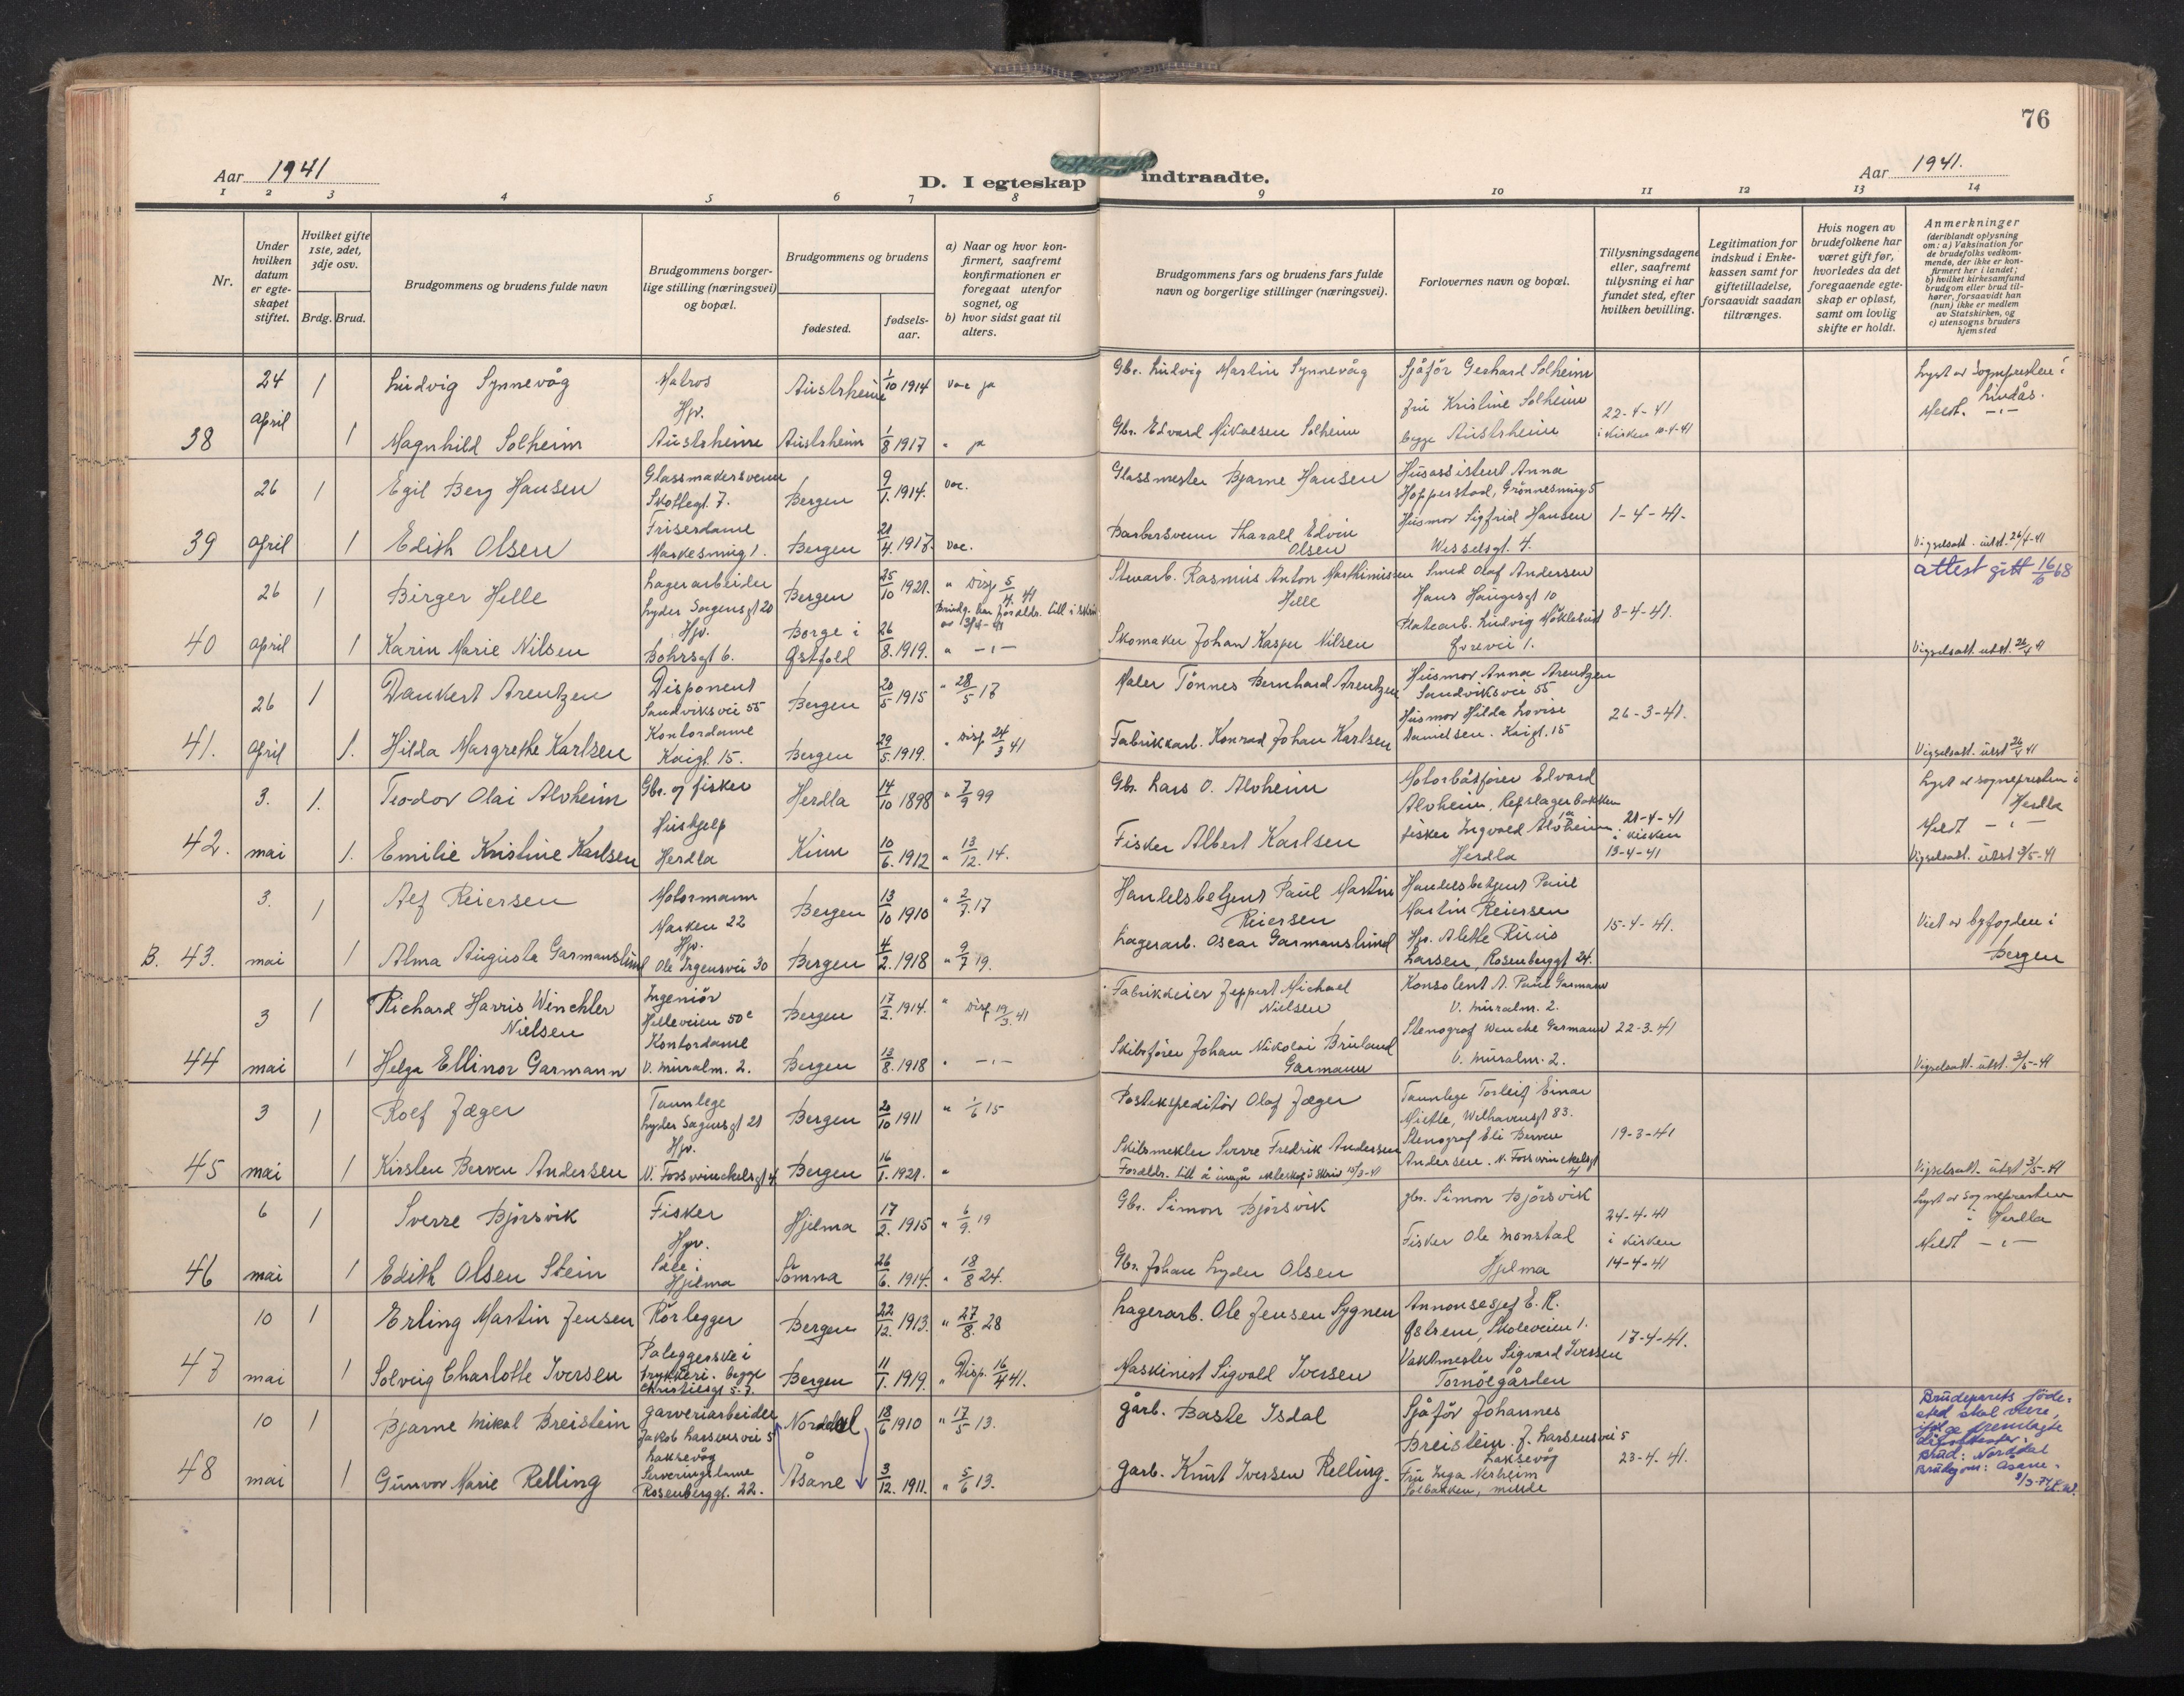 76
Aar 1941
D. I egteskap indtraadte.
Aar 1941.
1 2 3 4 5 6 7 8 9 10 11 12 13 14
Nr.
Under hvilken datum er egteskapet stiftet.
Hvilket gifte 1ste, 2det, 3dje osv.
Brdg. Brud.
Brudgommens og brudens fulde navn
Brudgommens borgerlige stilling (næringsvei) og bopæl.
Brudgommens og brudens
fødested.
fødselsaar.
a) Naar og hvor konfirmert, saafremt konfirmationen er foregaat utenfor sognet, og
b) hvor sidst gaat til alters.
Brudgommens fars og brudens fars fulde navn og borgerlige stillinger (næringsvei).
Forlovernes navn og bopæl.
Tillysningsdagene eller, saafremt tillysning ei har fundet sted, efter hvilken bevilling.
Legitimation for indskud i Enkekassen samt for giftetilladelse, forsaavidt saadan tiltrænges.
Hvis nogen av brudefolkene har været gift før, hvorledes da det foregaaende egteskap er opløst, samt om lovlig skifte er holdt.
Anmerkninger
(deriblandt oplysning om: a) Vaksination for de brudefolks vedkommende, der ikke er konfirmert her i landet; b) hvilket kirkesamfund brudgom eller brud tilhører, forsaavidt han (hun) ikke er medlem av Statskirken, og c) utensogns bruders hjemsted
24 1 Ludvig Synnevåg Matros Austrheim 1/10 1914 vac ja Gbr. Ludvig Martin Synnevåg Sjåfør Gerhard Solheim Lyst av Sognepresten i Lindås.
38 April 1 Magnhild Solheim Hpv. Austrheim Austrheim 1/8 1917 " ja Gbr. Edvard Mikalsen Solheim Fru Kristine Solheim begge Austrheim 22-4-41 i kirken 10-4-41 Meldt. -"-
26 1 Egil Berg Hansen Glassmakersvenn Skottegt. 7. Bergen 9/1. 1914. vac. Glassmester Bjarne Hansen Husassistent Anna Hopperstad, Grønnesmug 5
39 April 1 Edith Olsen Friserdame Markesmug 1. Bergen 21/4. 1917. vac. Barbersvenn Harald Edvin Olsen Husmor Sigfrid Hansen Wesselsgt. 4. 1-4-41. Vigselsatt. utst. 26/4-41
26 1 Birger Helle Lagerarbeider Lyder Sagensgt 20 Bergen 25/10 1921. " Disp 5/4. 41 Stuearb. Rasmus Anton Mathinisen Helle Smed Olaf Andersen Hans Haugesgt 10 attest gitt 16/6 68
40 April 1 Karin Marie Nilsen Hpv. Bohrsgt 6. Borge i Østfold 26/8. 1919. " -"- Skomaker Johan Kasper Nilsen Platearb. Ludvig Møklebust Øvrevei 1. 8-4-41. Vigselsatt. utst. 26/4 41
26 1 Dankert Arentzen Disponent Sandviksvei 55 Bergen 20/5 1915 " 28/5 17 Maler Tönnes Bernhard Arentzen Husmor Anna Arentzen Sandviksvei 55
41. April 1. Hilda Margrethe Karlsen Kontordame Kaigt. 15. Bergen 29/5. 1919. " Disp 24/3 41 Fabrikkarb. Konrad Johan Karlsen Husmor Hilda Lovise Danielsen. Kaigt. 15 26-3-41. Vigselsatt. utst 26/4 41
3. 1. Teodor Olai Alvheim Gbr. og fisker Herdla 14/10 1898 " 7/9 99 Gbr. Lars O. Alvheim Motorbåtfører Edvard Alvheim, Repslagerbakken Lyst av sognepresten i Herdla
42. mai 1. Emilie Kristine Karlsen Hushjelp Herdla Kinn 10/6. 1912 " 13/12. 14. Fisker Albert Karlsen fisker Ingvald Alvheim Herdla 21-4-41 i kirken 13-4-41 Meldt -"- Vigselsatt. utst 3/5-41
3. 1 Alf Reiersen Motormann Marken 22 Bergen 13/10 1910 " 2/7. 17 Handelsbetjent Paul Martin Reiersen Handelsbetjent Paul Martin Reiersen Viet av byfogden i Bergen
B. 43. mai 1 Alma Auguste Garmannslund Hpv. Ole Irgensvei 30 Bergen 4/2. 1918 " 9/7 19. Lagerarb. Oscar Garmanslund Hpr. Alette Larsen, Rosenberggt 24. 15-4-41.
3 1 Richard Harris Winckler Nielsen Ingeniør Helleveien 50c Bergen 17/2. 1914. " Disp. 19/3. 41 Fabrikkeier Jeppert Michael Nielsen Konsulent A. Paul Garmann V. Muralm. 2.
44 mai 1 Helga Ellinor Garmann Kontordame V. Muralm. 2. Bergen 13/8. 1918 " -"- Skibsfører Johan Nikolai Bruland Garmann Stenograf Wenche Garmann V. Muralm. 2. 22-3-41 Vigselsatt. utst. 3/5-41
3 1 Rolf Jæger Tannlege Lyder Sagensgt 21 Bergen 20/10 1911 " 1/6 15 Postekspeditør Olaf Jæger Tannlege Torleif Einar Mietle, Welhavensgt 83.
45 mai 1 Kirsten Berven Andersen Hpv. N. Fosswinckelsgt 4 Bergen 16/1. 1921. " Skibsmekler Sverre Fredrik Andersen Foreldr. till å inngå ekteskap i skriv 15/3-41 Stenograf Eli Berven Andersen. N. Fosswinckelsgt 4 19-3-41 Vigselsatt. utst 3/5-41
6 1 Sverre Bjørsvik Fisker Hjelma 17/2. 1915 " 6/9. 19 Gbr. Simon Bjørsvik gbr. Simon Bjørsvik Lyst av Sognepresten i Herdla
46 mai 1 Edith Olsen Stein Hpv. Sæle i Hjelma Sömna 26/6. 1914. " 18/8 24. Gbr. Johan Lyder Olsen Fisker Ole Monstal Hjelma 24-4-41 i kirken 14-4-41 Meldt -"-
10 1 Erling Martin Jensen Rörlegger Bergen 22/12. 1913. " 27/8. 28 Lagerarb. Ole Jensen Sygnen Annonsesjef E. R. Østrem, Skoleveien 1.
47 mai 1 Solveig Charlotte Iversen Paleggerske i trykkeri. begge Christiesgt 5-7. Bergen 11/1. 1919. " Disp. 16/4 41. Maskinist Sigvald Iversen Vaktmester Sigvard Iversen Tornöegården 17-4-41.
10 1 Bjarne Mikal Breistein garveriarbeider Jakob Larsensvei 5 Laksevåg Norddal 18/6 1910 " 17/5 13. gårb. Baste Isdal Sjåför Johannes Breistein J. Larsensvei 5 Laksevåg Brudeparets fødested skal være, ifølge fremlagte dåpsattester: Brud: Norddal Brudgom: Åsane. 9/3-74
48 mai 1 Gunvor Marie Relling Serveringsdame Rosenberggt. 22. Åsane 3/12. 1911. " 5/6 13. garb. Knut Iversen Relling. Fru Inga Nesheim Solbakken, Milde 23-4-41.